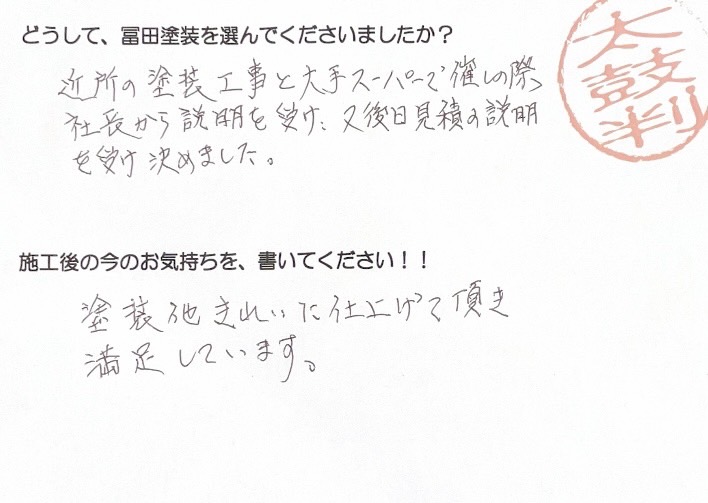 どうして、冨田塗装を選んでくださいましたか？
太鼓判
近所の塗装工事と大手スーパーで催しの際、
社長から説明を受け、又後日見積の説明
を受け決めました。
施工後の今のお気持ちを、書いてください！！
塗装他きれいに仕上げて頂き
満足しています。